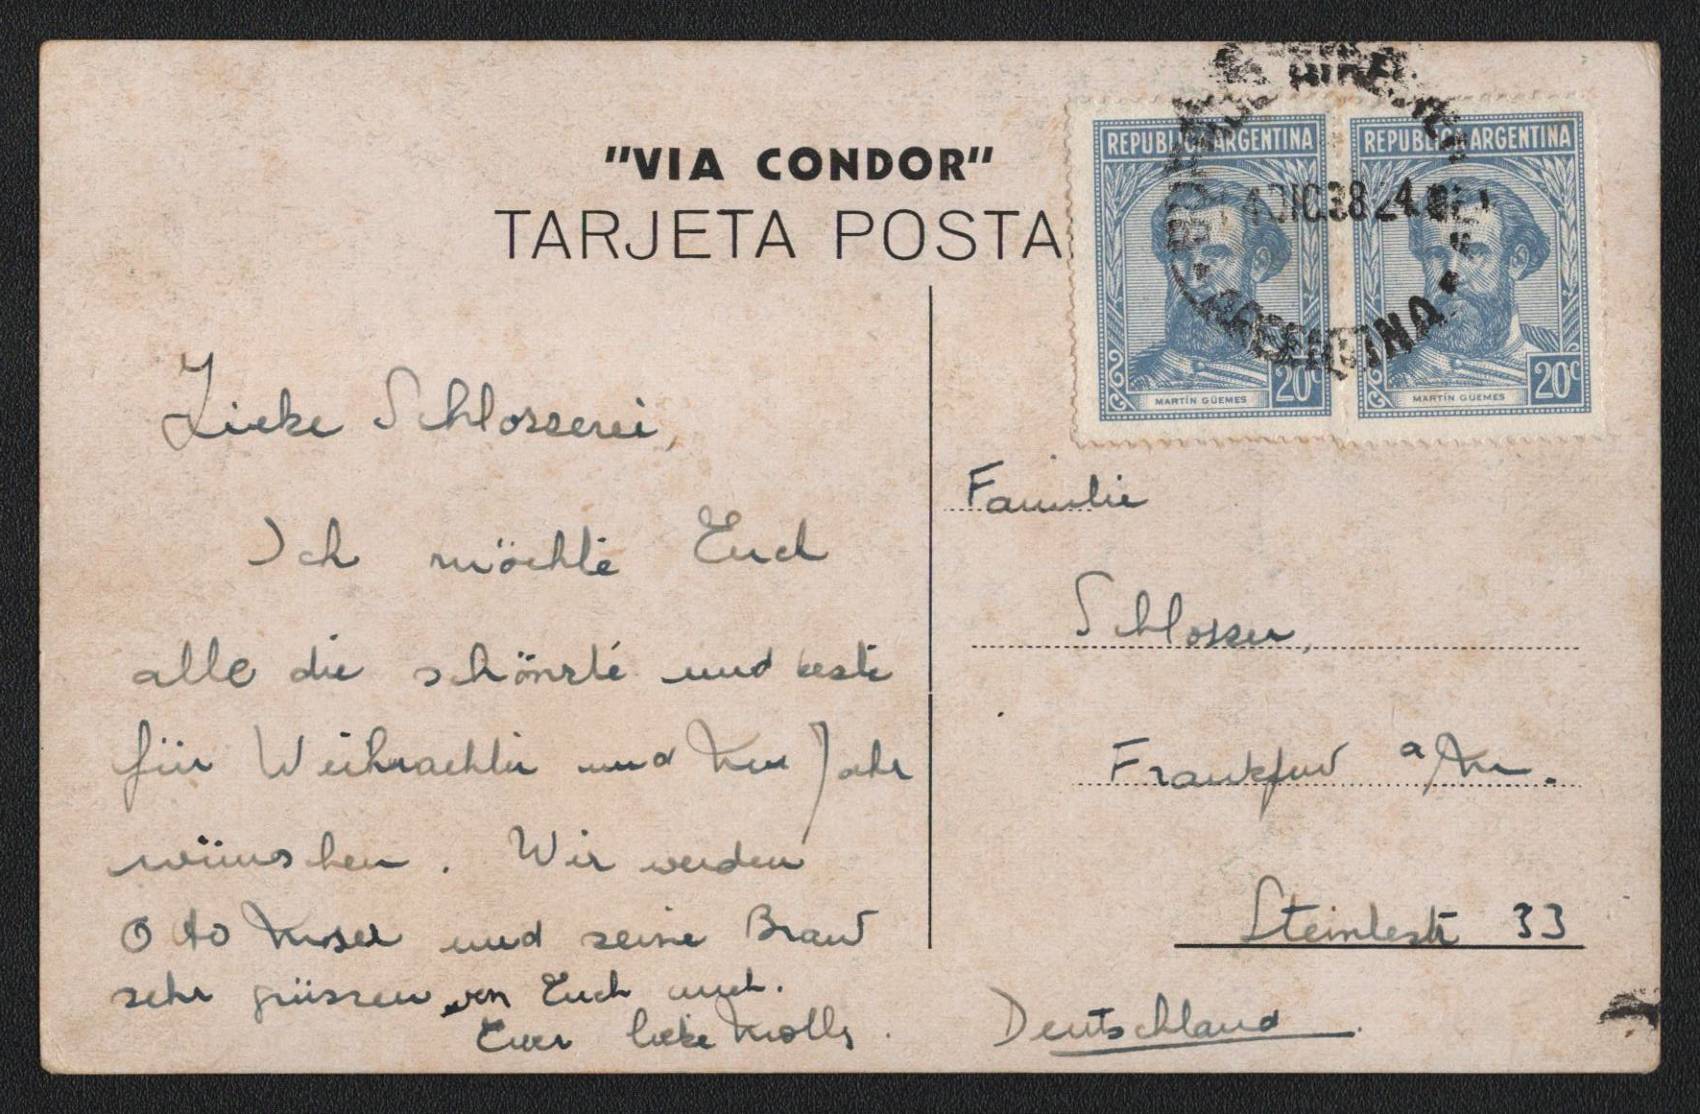 "VIA CONDOR"
TARJETA POSTA
REPUBLICA ARGENTINA
REPUBLICA ARGENTINA
DIC 38 24
ARGENTINA
20c
20c
MARTÍN GÜEMES
MARTÍN GÜEMES
Liebe Schlosserei,
Ich möchte Euch
alle die schönste und beste
für Weihnachten und Neu Jahr
wünschen. Wir werden
Otto und seine Braut
sehr grüssen von Euch auch.
Euer liebe
Familie
Schlosser,
Frankfurt a/M.
Steinlestr 33
Deutschland